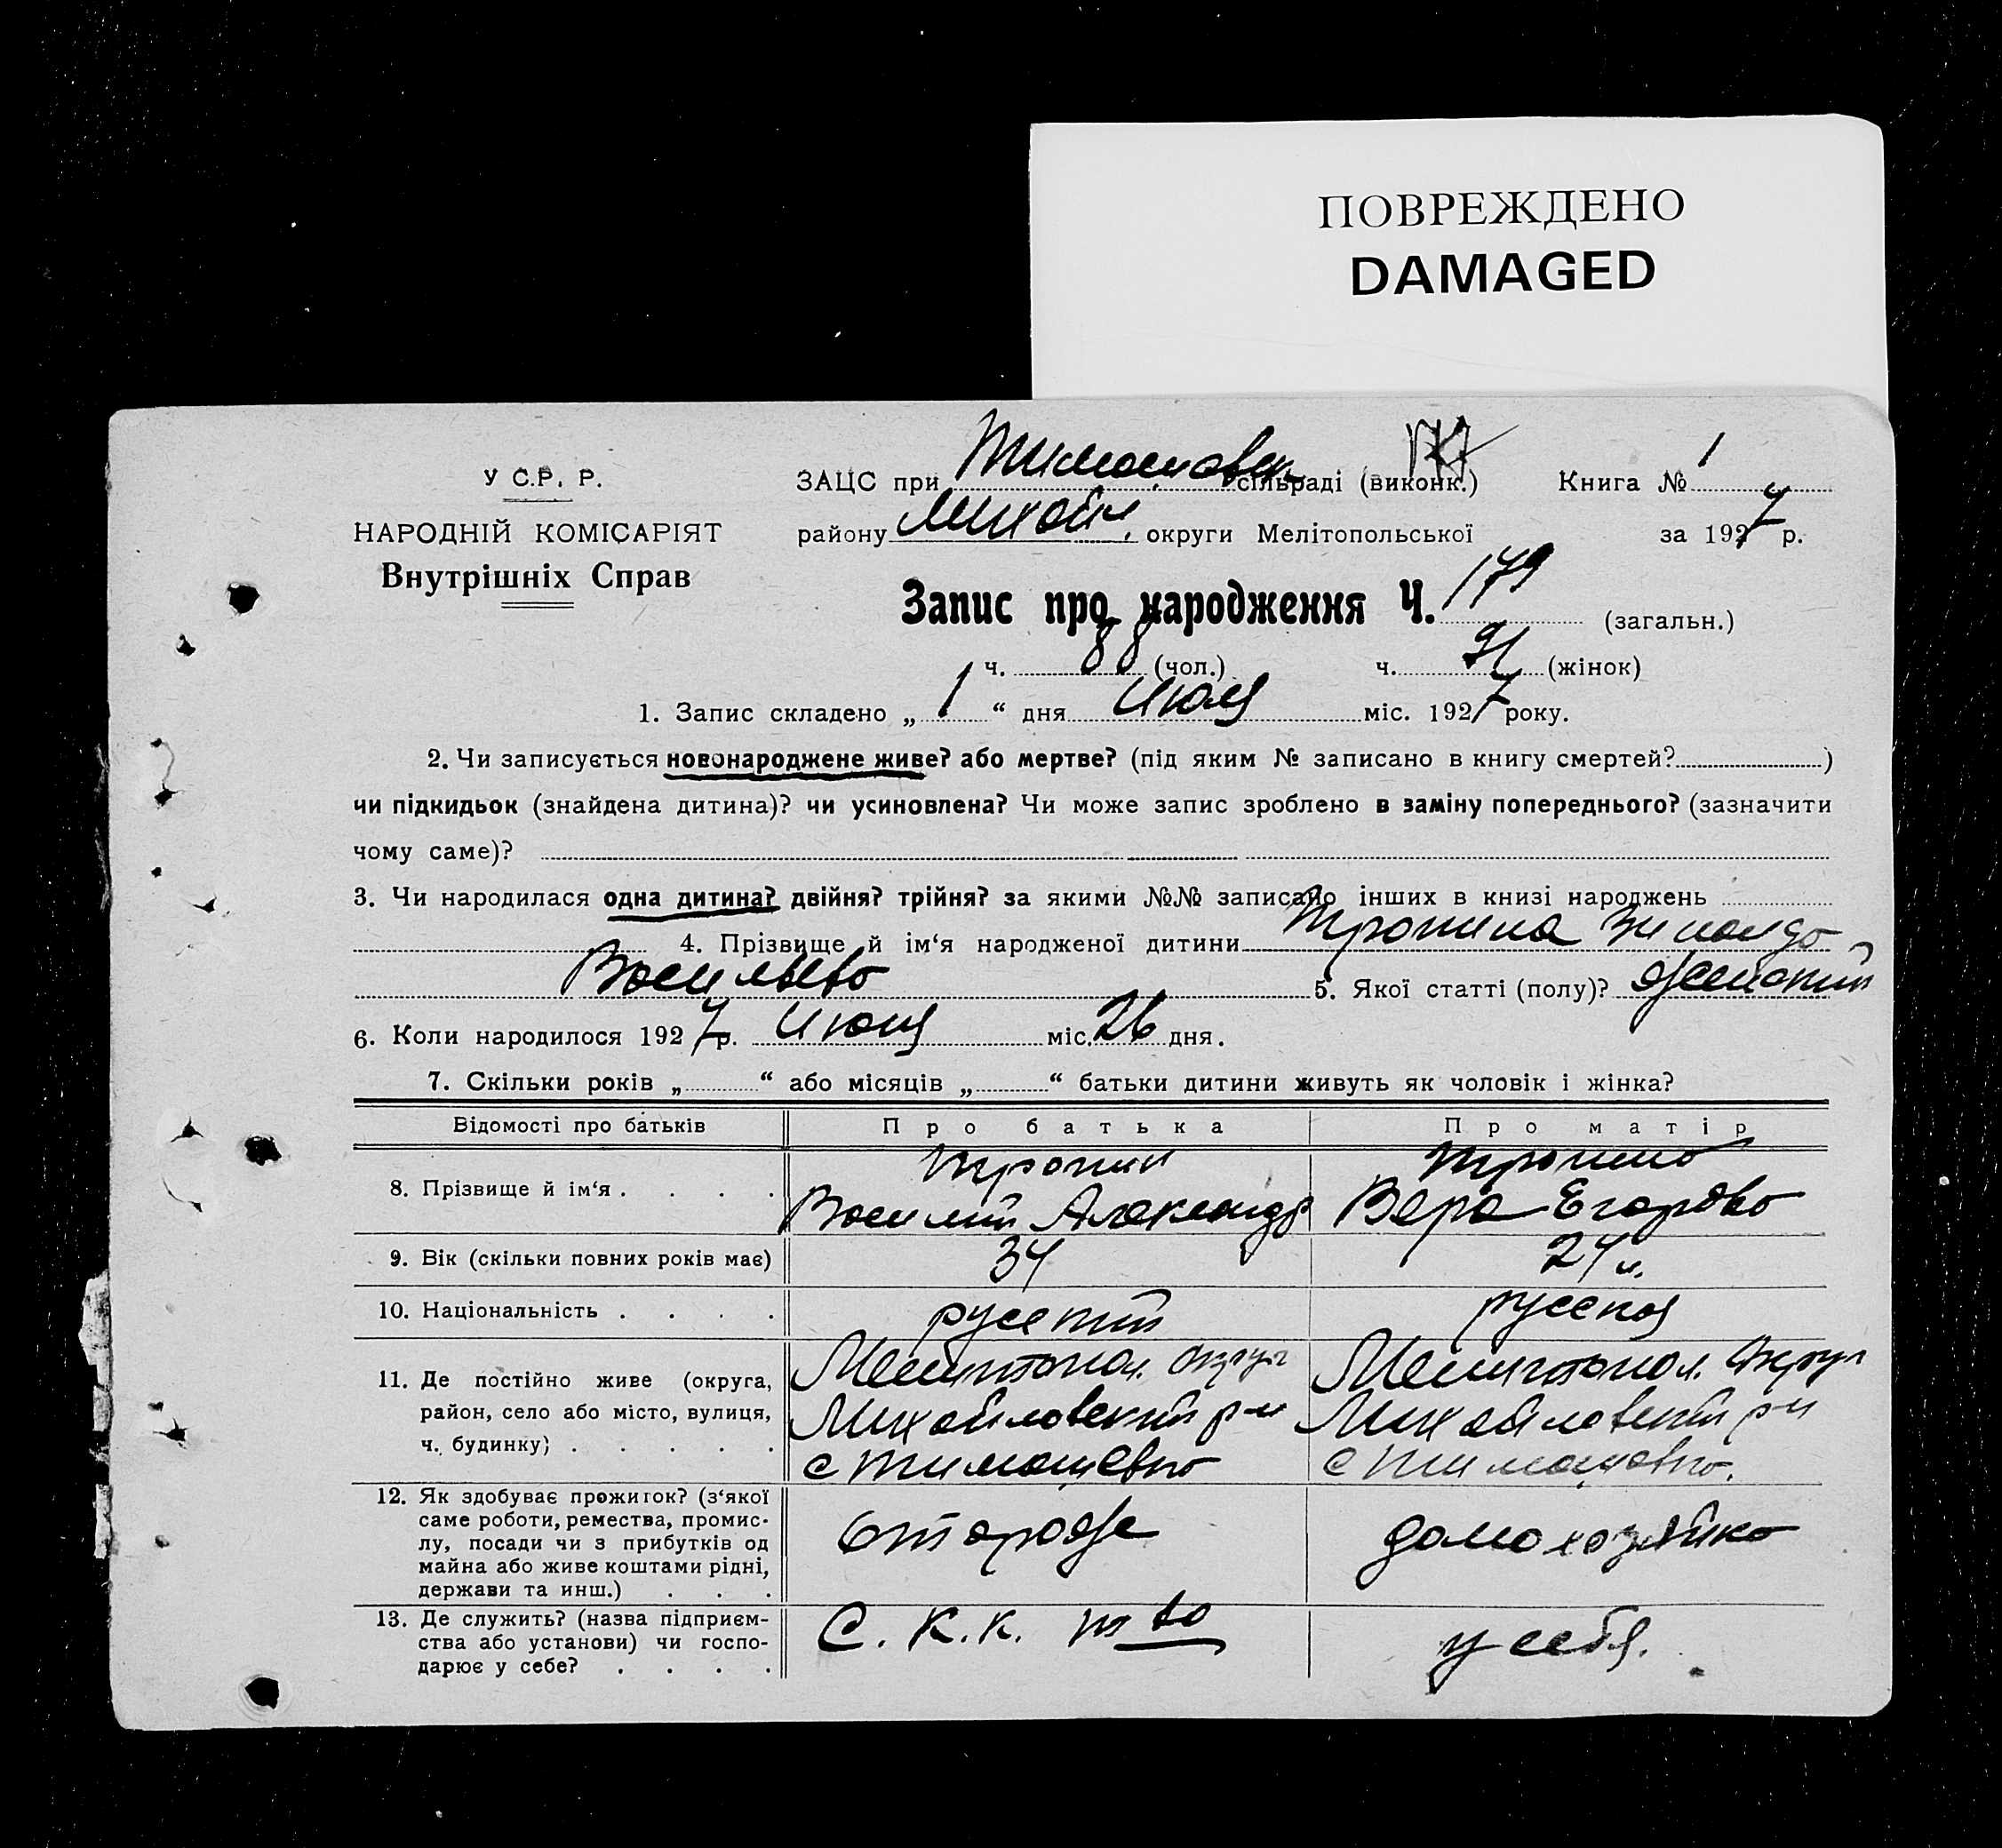 ПОВРЕЖДЕНО
DAMAGED
У С.Р. Р.
НАРОДНІЙ КОМІСАРІЯТ
Внутрішніх Справ
ЗАЦС при Тимошовск сільраді (виконк.) Книга № 1
району Михайл. округи Мелітопольської за 1927 р.
Запис про народження Ч. 179 (загальн.)
ч. 88 (чол.) ч. 91 (жінок)
1. Запис складено „ 1 “ дня Июля міс. 1927 року.
2. Чи записується новонароджене живе? або мертве? (під яким № записано в книгу смертей? )
чи підкидьок (знайдена дитина)? чи усиновлена? Чи може запис зроблено в заміну попереднього? (зазначити
чому саме)?
3. Чи народилася одна дитина? двійня? трійня? за якими №№ записано інших в книзі народжень
4. Прізвище й ім‘я народженої дитини Тронина Зинаида
Васильев 5. Якої статті (полу)? женский
6. Коли народилося 1927 р. Июня міс. 26 дня.
7. Скільки років „ “ або місяців „ “ батьки дитини живуть як чоловік і жінка?
Відомості про батьків Про батька Про матір
8. Прізвище й ім‘я . . . . Тронин Василий Александр Тронина Вера Егоровна
9. Вік (скільки повних років має) 34 24 л.
10. Національність . . . . русский русская
11. Де постійно живе (округа, район, село або місто, вулиця, ч. будинку) . . . . . Мелитопол. округ Михайловский р-н с Тимашевка Мелитопол. Округ Михайловский р-н с Тимашовка.
12. Як здобуває прожиток? (з‘якої саме роботи, ремества, промислу, посади чи з прибутків од майна або живе коштами рідні, держави та инш.) . . . Сторож домохозяйка
13. Де служить? (назва підприємства або установи) чи господарює у себе? . . . . С. К. К. т-во у себя.